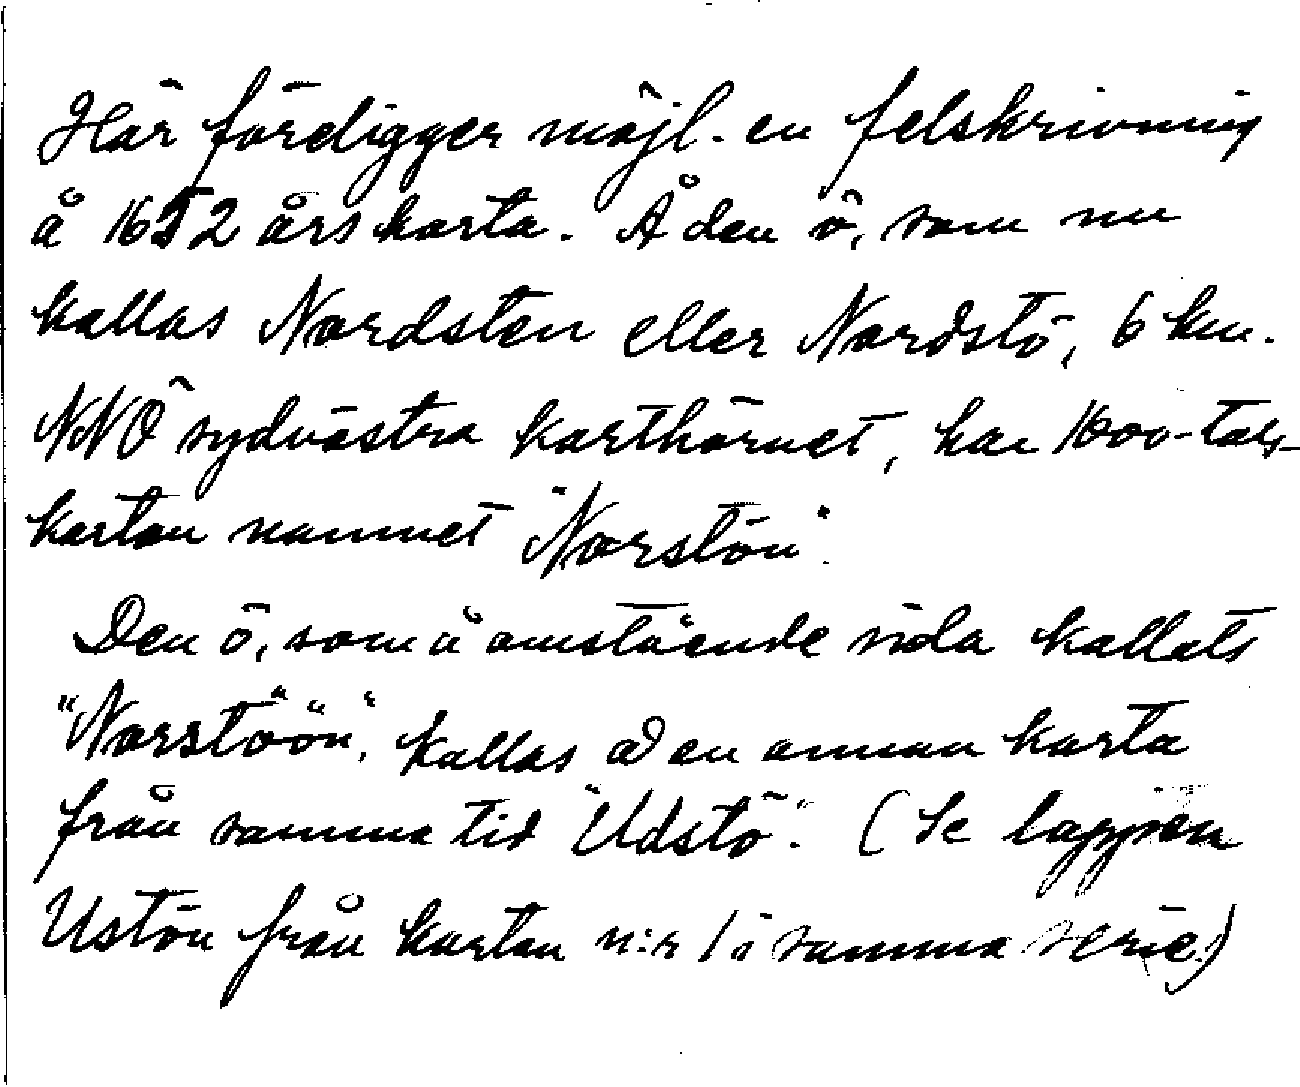 Här föreligger möjl. en felskrivning
å 1652 års karta. Å den ö, som nu
kallas Nordsten eller Nordstö, 6 km.
NNO sydvästra karthörnet, har 1600-tals-
kartan namnet "Norstön".
Den ö, som å omstående sida kallats
"Norstöön", kallas å en annan karta
från samma tid "Udstö". (Se lappen
Ustön från kartan n:r 1 i samma serie.)